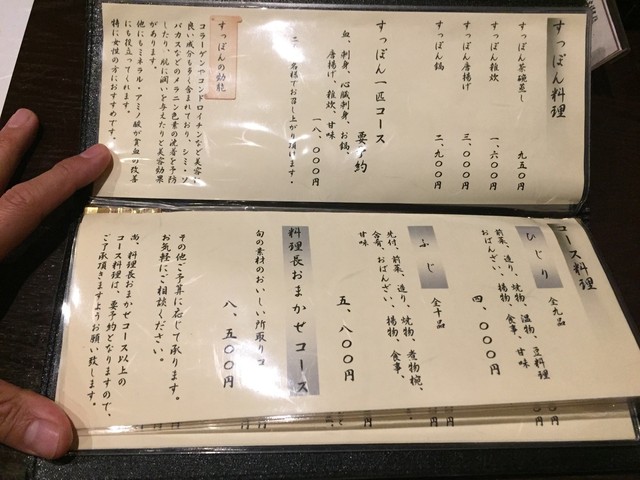 すっぽん料理
すっぽん茶碗蒸し 九五〇円
すっぽん雑炊 一、六〇〇円
すっぽん唐揚げ 三、〇〇〇円
すっぽん鍋 二、九〇〇円
すっぽん一匹コース 要予約
血、刺身、心臓刺身、お鍋、
唐揚げ、雑炊、甘味
一八、〇〇〇円
名様でお召し上がり頂けます。
すっぽんの効能
コラーゲンやコンドロイチンなど美容に
良い成分も多く含まれており、シミ・ソ
バカスなどのメラニン色素の沈着を予防
したり、肌に潤いを与えたりと美容効果
があります。
他にもミネラル・アミノ酸が貧血の改善
にも役立ってくれます。
特に女性の方におすすめです。
コース料理
ひじり 全九品
前菜、造り、焼物、温物、豆料理
おばんざい、揚物、食事、甘味
四、〇〇〇円
ふじ 全十品
先付、前菜、造り、焼物、煮物椀、
合肴、おばんざい、揚物、食事、
甘味
五、八〇〇円
料理長おまかせコース
旬の素材のおいしい所取りコ
八、五〇〇円
その他ご予算に応じて承ります。
お気軽にご相談ください。
尚、料理長おまかせコース以上の
コース料理は、要予約となりますので、
ご了承頂きますようお願い致します。